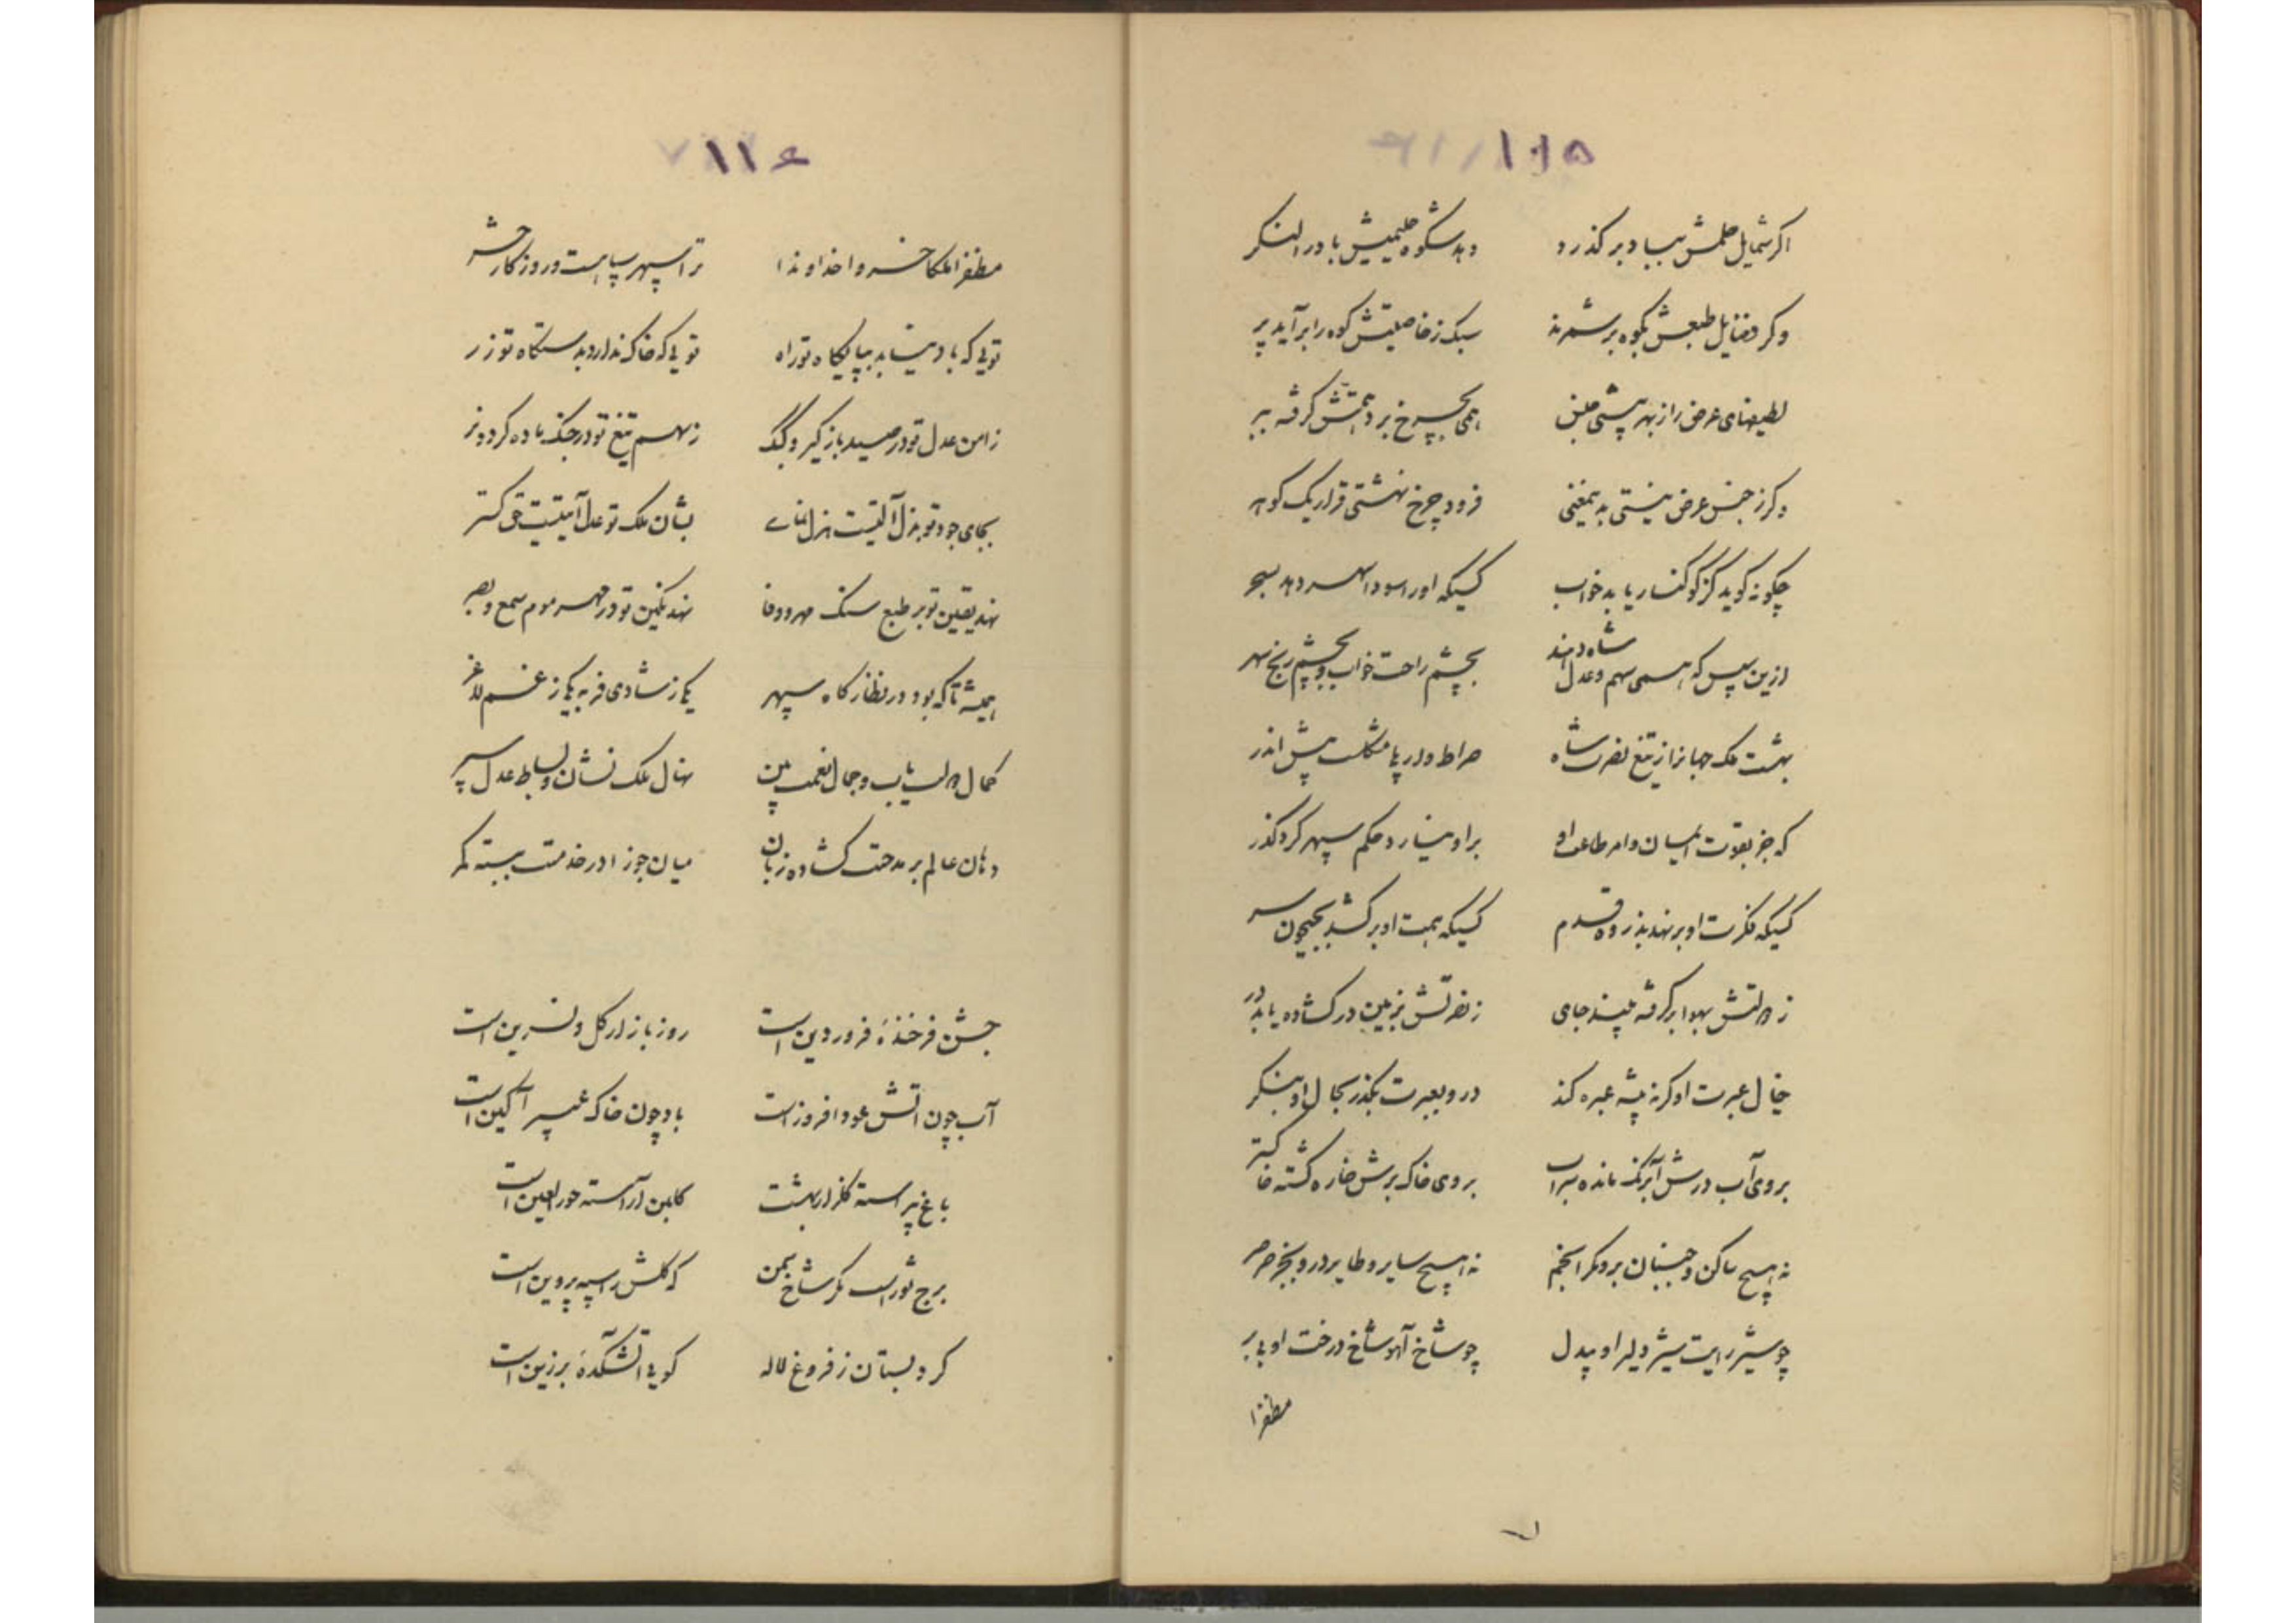 ۱۱۵
اکر شمایل حلمش بباد بر کذرد دهد شکوه حلیمیش باد را لنکر
وکر فضایل طبعش بکوه بر شمرند سبک ز خاصیتش کوه را بر آید پر
لطیفهای عرض را ز بهر پیشی همی بچرخ برد همتش کرفته ببر
وکر ز جنس عرض نیستی بدین معنی فرود چرخ نهشتی قرار یک کوهر
چکونه کوید کز کوکنار یابد خواب کسیکه او را سودا سهر دهد بسحر
ازین سپس که همی سهم و عدل شاه دهند بچشم راحت خواب و بچشم رنج سهر
بهشت ملک جهانرا ز تیغ نصرت شاه صراط وار پیشش اندر
که جز بقوت ایمان و امر طاعت او بر او نیارد حکم سپهر کرد کذر
کسیکه فکرت او بر نهد بذروه قدم کسیکه همت او بر کشد بجیحون سر
ز دولتش بهوا بر کرفته بیند جای ز نصرتش بزمین در کشاده یابد در
خیال عبرت او کر نه پیشه عبره کند درو بعبرت بکذر بحال او بنکر
بروی آب درش آبرنک مانده سراب بروی خاک برش خاره کشته خاکستر
نه هیچ ساکن و جنبان برو مکر انجم نه هیچ سایر و طایر درو بجز صرصر
چو شیر رایت شیر دلیر او بیدل چو شاخ آهو شاخ درخت او بی بر
مظفرا
۱۱۶
مظفرا ملکا خسروا خداوندا ترا سپهر سپاهست و روزکار حشر
تویی که باد نیابد بپایکاه تو راه تویی که خاک ندارد بدستکاه تو زر
ز امن عدل تو در صید باز کیرد کبک ز سهم تیغ تو در جنک ماده کردد نر
بجای جود تو بذل آلتیست هزل نمای بشان ملک تو عدل آیتیست حق کستر
نهد یقین تو بر طبع سنک مهر و وفا نهد نکین تو در مهر موم سمع و بصر
همیشه تا که بود در نظاره کاه سپهر یکی ز شادی فربه یکی ز غم لاغر
کمال دولت یاب و جمال نعمت بین نهال ملک نشان و بساط عدل سپر
دهان عالم بر مدحت کشاده زبان میان جوزا در خدمت ببسته کمر
جشن فرخندهٔ فروردین است روز بازار کل و نسرین است
آب چون آتش عود افروز است باد چون خاک عبیر آکین است
باغ پیراسته کلزار بهشت کلبن آراسته حورالعین است
برج ثور است مکر شاخ سمن که کلش را سپه پروین است
کرد بستان ز فروغ لاله کویی آتشکدهٔ برزین است